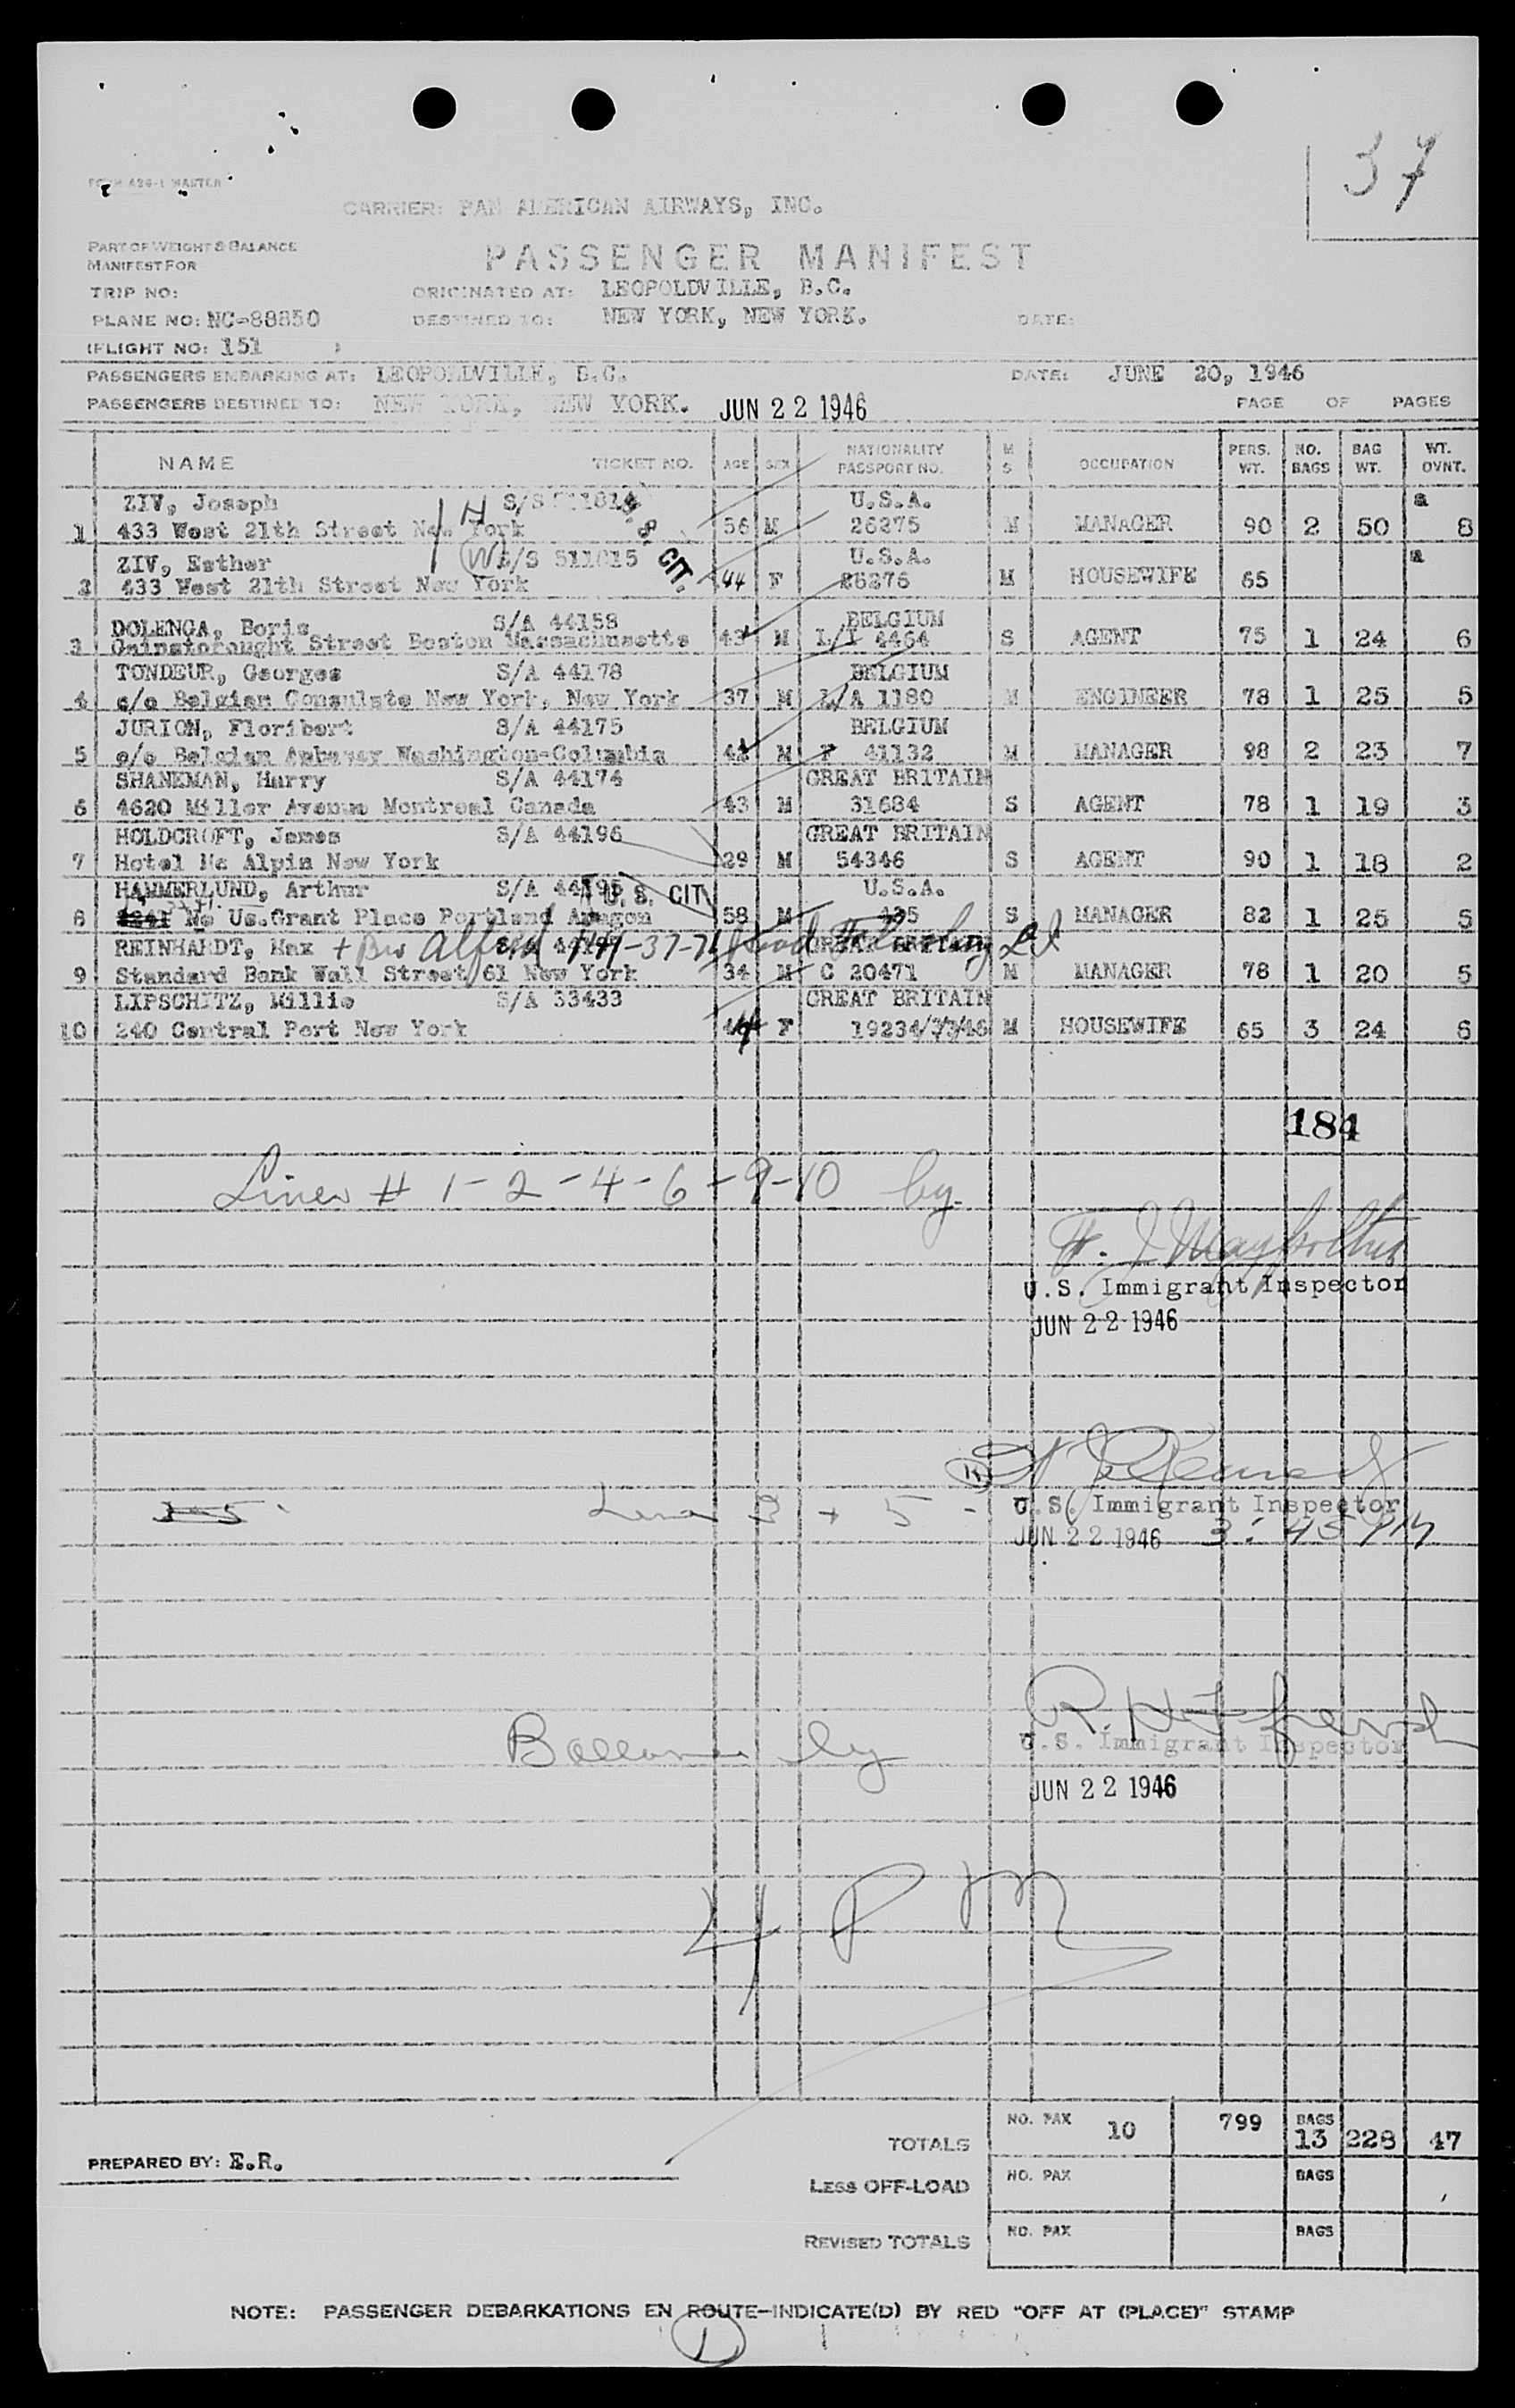 37
FORM 426-1 MASTER
CARRIER: PAN AMERICAN AIRWAYS, INC.
PART OF WEIGHT & BALANCE
MANIFEST FOR
PASSENGER MANIFEST
TRIP NO:
ORIGINATED AT: LEOPOLDVILLE, B.C.
PLANE NO: NC-88850
DESTINED TO: NEW YORK, NEW YORK.
DATE:
(FLIGHT NO: 151 )
PASSENGERS EMBARKING AT: LEOPOLDVILLE, B.C.
DATE: JUNE 20, 1946
PASSENGERS DESTINED TO: NEW YORK, NEW YORK. JUN 22 1946
PAGE OF PAGES
NAME TICKET NO. AGE SEX NATIONALITY PASSPORT NO. M S OCCUPATION PERS. WT. NO. BAGS BAG WT. WT. OVNT.
ZIV, Joseph H S/S U.S.A. a
1 433 West 21th Street New York 56 M 26275 M MANAGER 90 2 50 8
U.S. CIT.
ZIV, Esther W S/S 511015 U.S.A. a
2 433 West 21th Street New York 44 F 26276 M HOUSEWIFE 65
DOLENGA, Boris S/A 44158 BELGIUM
3 Gainstorought Street Boston Massachusetts 43 M L/I 4464 S AGENT 75 1 24 6
TONDEUR, Georges S/A 44178 BELGIUM
4 c/o Belgian Consulate New York, New York 37 M L/A 1180 M ENGINEER 78 1 25 5
JURION, Floribert S/A 44175 BELGIUM
5 c/o Belgian Ambassy Washington-Columbia M 41132 M MANAGER 98 2 23 7
SHANEMAN, Harry S/A 44174 GREAT BRITAIN
6 4620 Miller Avenue Montreal Canada 43 M 31684 S AGENT 78 1 19 3
HOLDCROFT, James S/A 44196 GREAT BRITAIN
7 Hotel Mc Alpin New York 29 M 54346 S AGENT 90 1 18 2
HAMMERLUND, Arthur S/A 44195 U.S. CIT U.S.A.
8 Ne Us.Grant Place Portland 58 M S MANAGER 82 1 25 5
REINHARDT, Max + Bro Alfred 144-37-71 Road Flushing L.I. GREAT BRITAIN
9 Standard Bank Wall Street 61 New York 34 M C 20471 M MANAGER 78 1 20 5
LIPSCHITZ, Millie S/A 33433 GREAT BRITAIN
10 240 Central Port New York 44 F 19234/7/3/46 M HOUSEWIFE 65 3 24 6
184
Lines # 1-2-4-6-9-10 by
U.S. Immigrant Inspector
JUN 22 1946
3-5
Lines 3 + 5 - U.S. Immigrant Inspector
JUN 22 1946 3:45 PM
Balance by
U.S. Immigrant Inspector
JUN 22 1946
4 PM
TOTALS NO. PAX 10 799 BAGS 13 228 47
PREPARED BY: E.R.
LESS OFF-LOAD NO. PAX BAGS
REVISED TOTALS NO. PAX BAGS
NOTE: PASSENGER DEBARKATIONS EN ROUTE-INDICATE(D) BY RED "OFF AT (PLACE)" STAMP
1